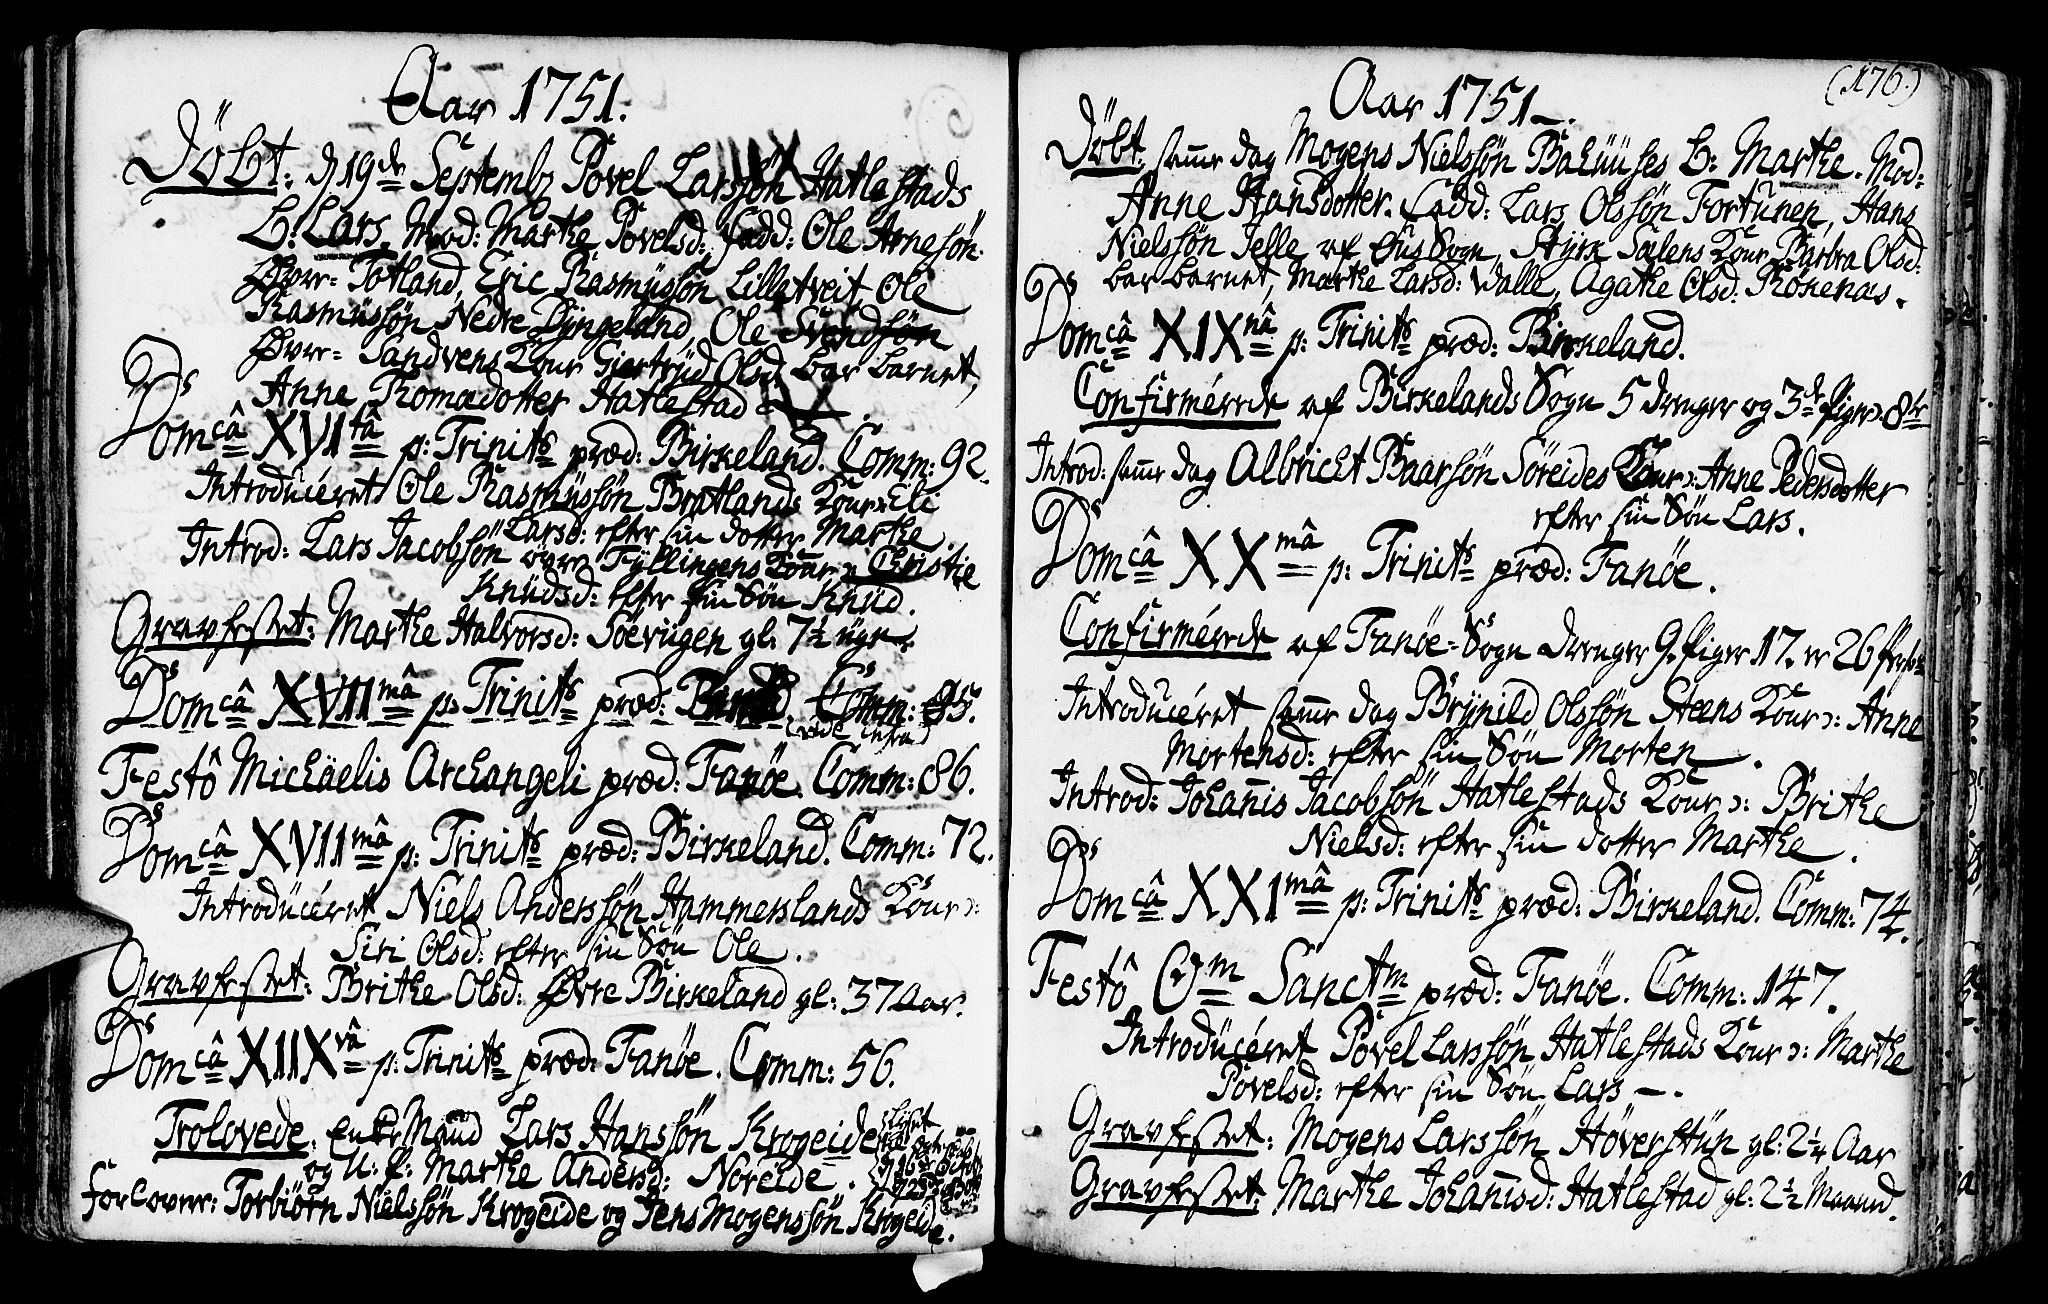 Aar 1751.
Döbt: d 19de Septembr Povel Larssön Hatlestads
B: Lars. Mod: Marthe Povelsd: Fadd: Ole Arnesön
Øvre-Totland, Eric Rasmüssön Lilletveit, Ole
Rasmüssön Nedre Dyngeland, Ole Svendsön
Øvre-Sandvens Kone Giertrüd Olsd. bar barnet,
Anne Thomædotter Hatlestad.
Doms câ XVI tâ p: Trinits præd: Birkeland. Comm: 92.
Introdücéret Ole Rasmüssön Bratlands Kone ɔ: Eli
Larsd: efter sin dotter Marthe
Introd: Lars Jacobsön øvre Fyllingens Kone ɔ: Christie
Knüdsd: efter sin Sön Knüd.
Gravfestet: Marthe Halvorsd: Söevügen gl: 7½ üger
Doms câ XVII mâ p: Trinits præd: Comm: 85.
(vide infra)
Festô Michäelis Archangeli præd: Fanöe. Comm: 86.
Doms câ XVII mâ p: Trinits præd: Birkeland. Comm: 72.
Introdücéret Niels Anderssön Hammerslands Kone ɔ:
Siri Olsd: efter sin Sön Ole.
Gravfestet: Brithe Olsd: Øvre Birkeland gl: 37 Aar.
Doms câ XIIX vâ p: Trinits præd: Fanöe. Comm: 56.
Trolovede. Enke Mand Lars Hanssön Krogeide
og U: P: Marthe Andersd: Noreide.
Forlover: Torbiörn Nielssön Krogeide og Jens Mogenssön Krogeide.
(176.)
Aar 1751.
Döbt: samme dag Mogens Nielssön Bahüüses B: Marthe. Mod:
Anne Hansdotter. Fadd: Lars Olssön Fortünen, Hans
Nielssön Jelle af Süs Sogn, Styrk Sælens Kone Barbra Olsd:
bar barnet, Marthe Larsd: Walle, Agathe Olsd: Röxenæs.
Doms câ XIX nâ p: Trinits præd: Birkeland.
Confirmérede af Birkelands Sogn 5 drenger og 3de Piger ɔ: 8te
Introd: samme dag Albricht Baarsön Söreides Kone ɔ: Anne Pedersdotter
efter sin Sön Lars.
Doms câ XX mâ p: Trinits præd: Fanöe.
Confirmérede af Fanöe-Sogn drenger 9. Piger 17. er 26 Pers:
Introdücéret samme dag Brynild Olssön Steens Kone ɔ: Anne
Mortensd: efter sin Sön Morten.
Introd: Johannis Jacobsön Hatlestads Kone ɔ: Brithe
Nielsd: efter sin dotter Marthe.
Doms câ XXI mâ p: Trinits præd: Birkeland. Comm: 74.
Festô O m Sanct m præd: Fanöe. Comm: 147.
Introdücéret Povel Larssön Hatlestads Kone ɔ: Marthe
Povelsd: efter sin Sön Lars.
Gravfestet: Mogens Larssön Höverstün gl: 2¼ Aar
Gravfestet: Marthe Johannisd: Hatlestad gl: 2½ Maaned.